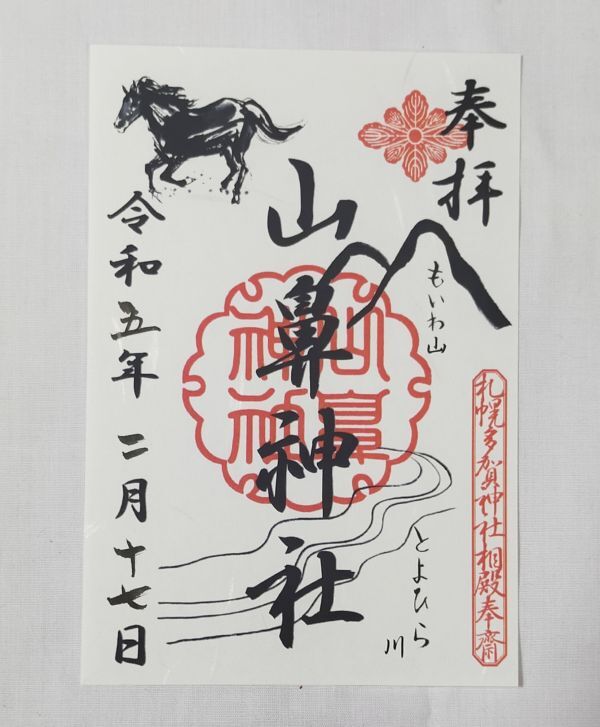 奉拝
もいわ山
札幌多賀神社相殿奉齋
山鼻神社
山鼻神社
とよひら川
令和五年二月十七日